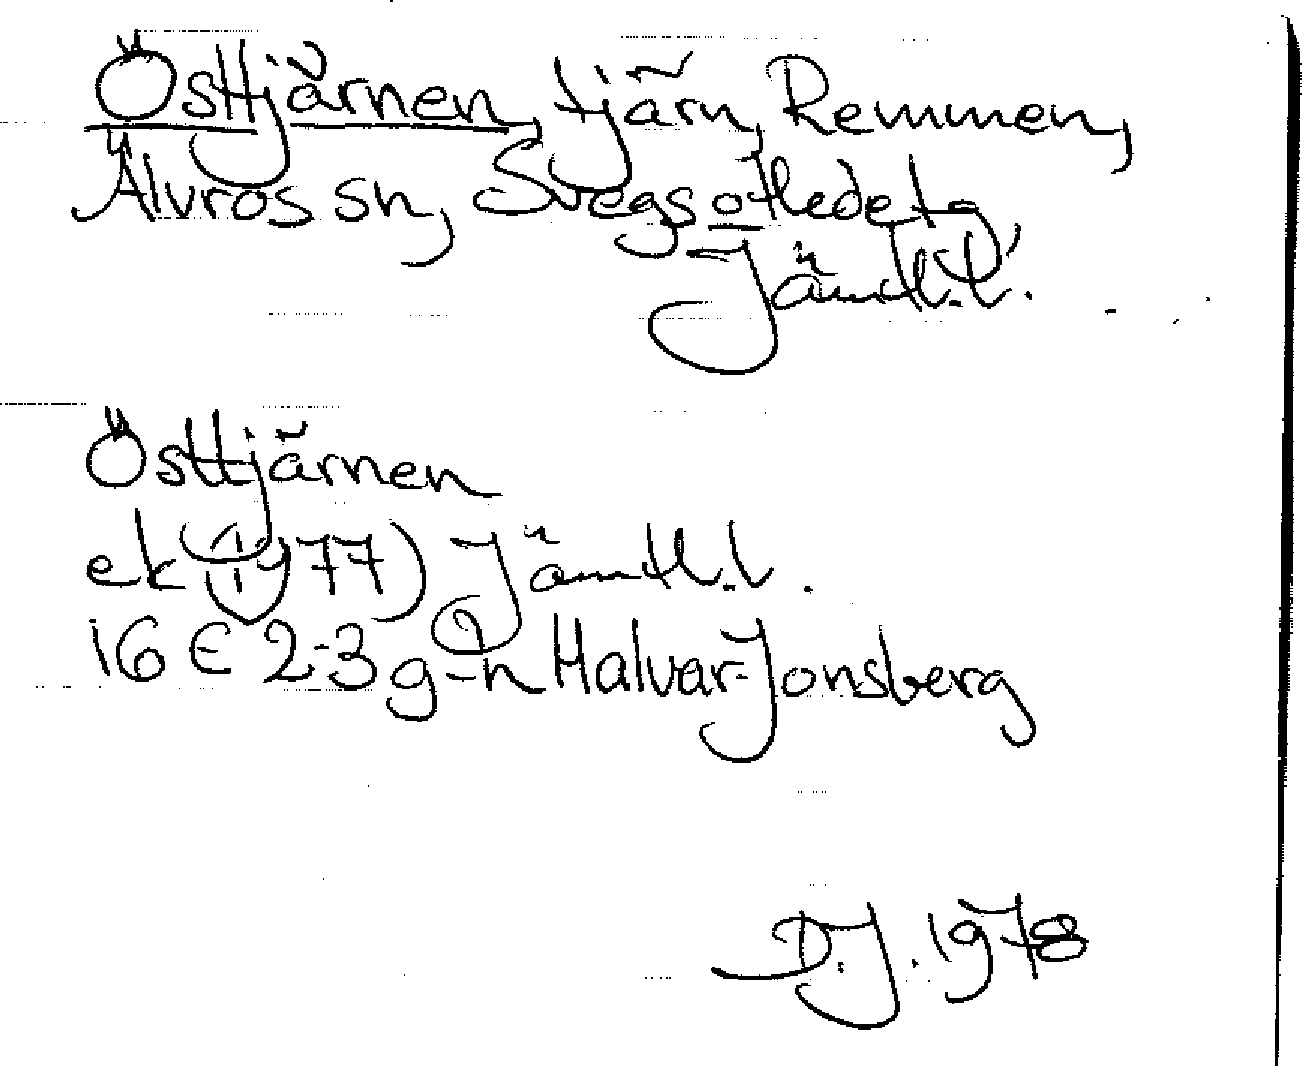 Östtjärnen, tjärn, Remmen,
Älvros sn, Svegs o Hede tg,
Jämtl. l.
Östtjärnen
ek (1977) Jämtl. l.
16 E 2-3 g-h Halvar-Jonsberg
D.J. 1978